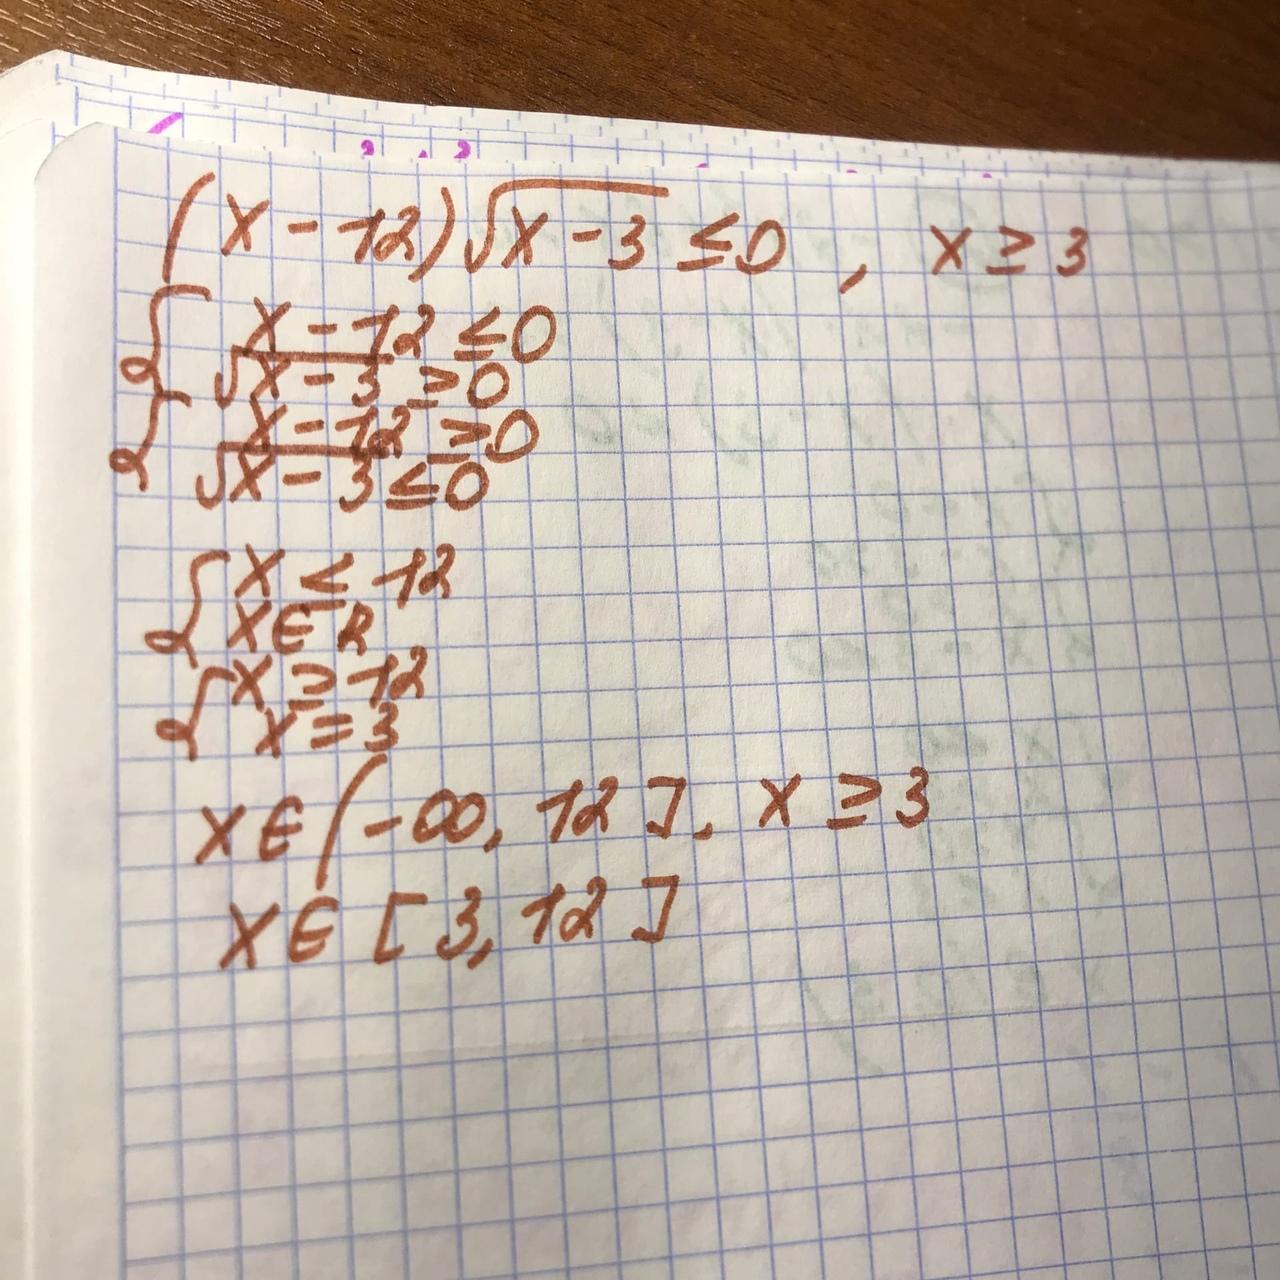 (x-12)√(x-3) ≤0, x ≥ 3
{ x-12 ≤0
√(x-3) ≥0
{ x-12 ≥0
√(x-3) ≤0
{ x ≤ 12
x∈R
{ x ≥ 12
x = 3
x∈(-∞, 12]. x ≥ 3
x∈ [3, 12]